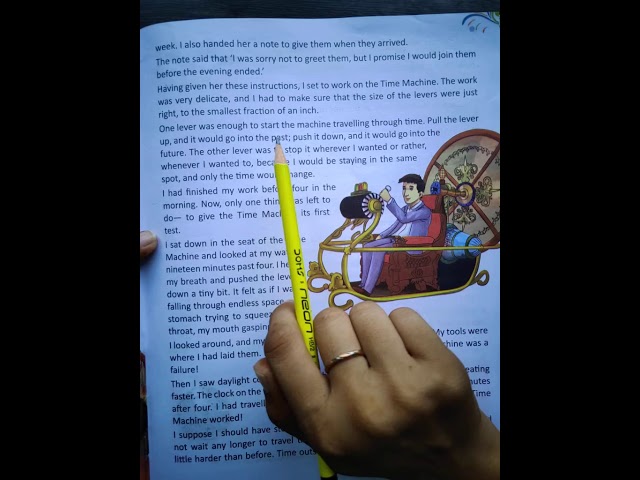 week. I also handed her a note to give them when they arrived.
The note said that 'I was sorry not to greet them, but I promise I would join them
before the evening ended.'
Having given her these instructions, I set to work on the Time Machine. The work
was very delicate, and I had to make sure that the size of the levers were just
right, to the smallest fraction of an inch.
One lever was enough to start the machine travelling through time. Pull the lever
up, and it would go into the past; push it down, and it would go into the
future. The other lever was stop it wherever I wanted or rather,
whenever I wanted to, I would be staying in the same
spot, and only the time
I had finished my work four in the
morning. Now, only one was left to
do— to give the Time its first
test.
I sat down in the seat of the
Machine and looked at my
nineteen minutes past four. I
my breath and pushed the
down a tiny bit. It felt as if I
falling through endless
stomach trying to
throat, my mouth
I looked around, and my My tools were
where I had laid them. was a
failure!
Then I saw daylight
faster. The clock on the
after four. I had Time
Machine worked!
I suppose I should have
not wait any longer to travel
little harder than before. Time
DOMS neon